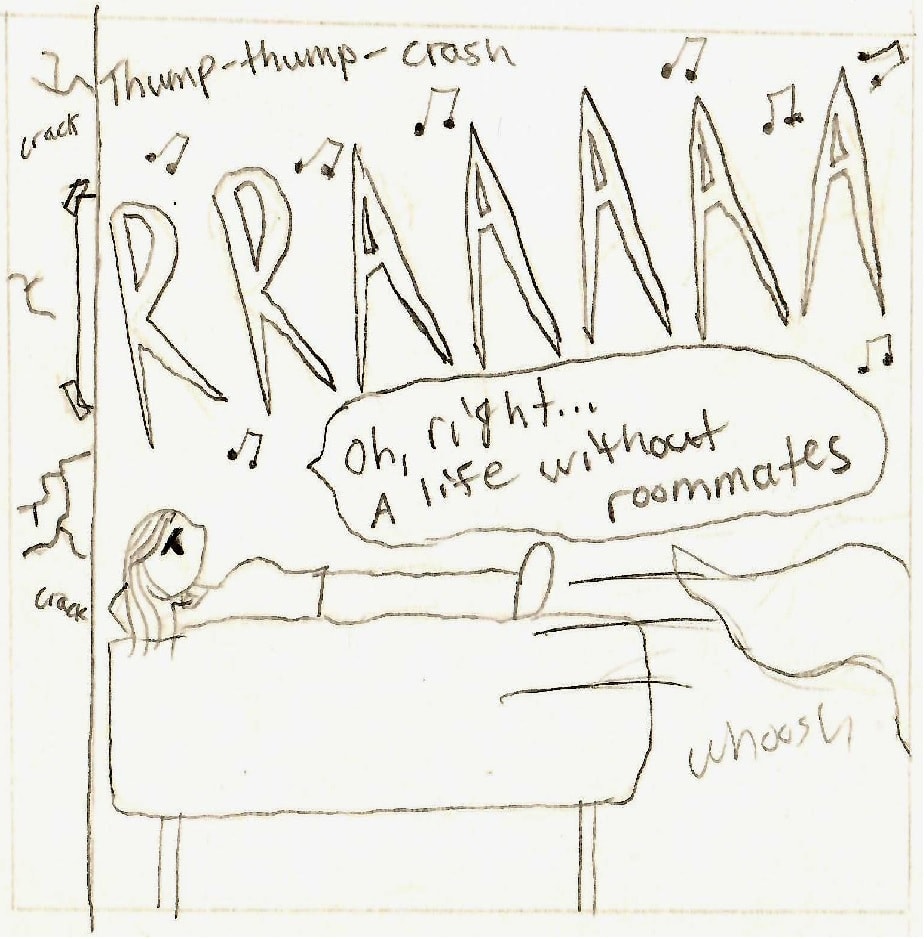 Thump-thump-crash
crack
RRAAAAA
Oh, right...
A life without
roommates
crack
whoosh